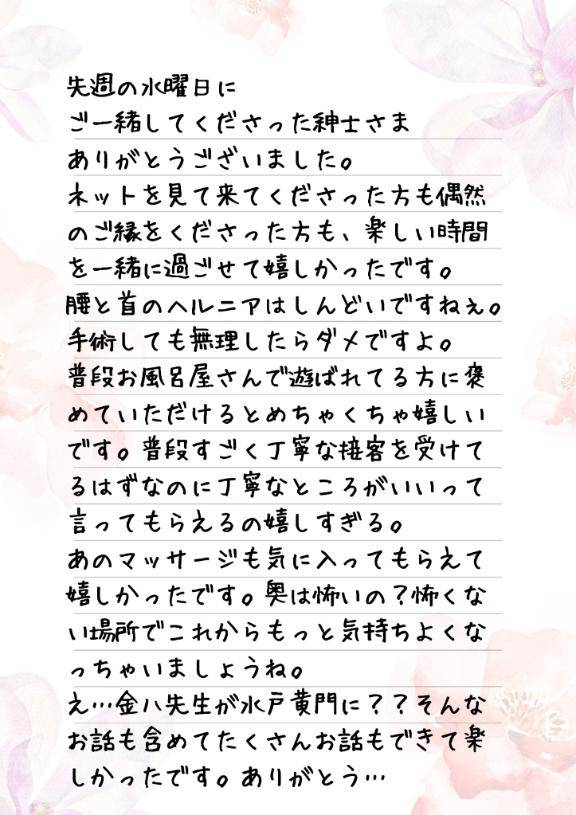 先週の水曜日に
ご一緒してくださった紳士さま
ありがとうございました。
ネットを見て来てくださった方も偶然
のご縁をくださった方も、楽しい時間
を一緒に過ごせて嬉しかったです。
腰と首のヘルニアはしんどいですねぇ。
手術しても無理したらダメですよ。
普段お風呂屋さんで遊ばれてる方に褒
めていただけるとめちゃくちゃ嬉しい
です。普段すごく丁寧な接客を受けて
るはずなのに丁寧なところがいいって
言ってもらえるの嬉しすぎる。
あのマッサージも気に入ってもらえて
嬉しかったです。奥は怖いの？怖くな
い場所でこれからもっと気持ちよくな
っちゃいましょうね。
え…金八先生が水戸黄門に？？そんな
お話も含めてたくさんお話もできて楽
しかったです。ありがとう…